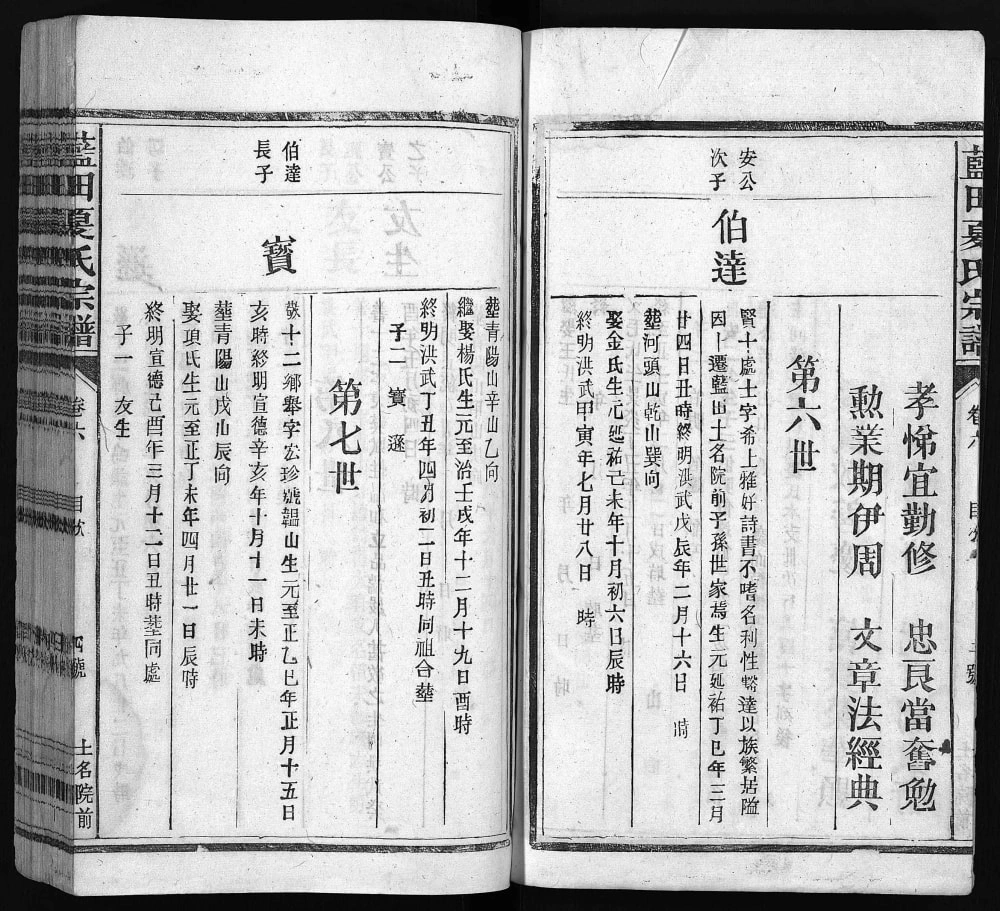 藍田夏氏宗譜
卷六
孝悌宜勤修 忠良當奮勉
勲業期伊周 文章法經典
第六世
安公
次子
伯達
賢十處士字希上雅好詩書不嗜名利性豁達以族繁居隘
因卜遷藍田土名院前子孫世家焉生元延祐丁巳年三月
廿四日丑時終明洪武戊辰年二月十六日 時
塟河頭山乾山巽向
娶金氏生元延祐己未年十月初六日辰時
終明洪武甲寅年七月廿八日 時
塟青陽山辛山乙向
繼娶楊氏生元至治壬戌年十二月十九日酉時
終明洪武丁丑年四月初二日丑時同祖合塟
子二 寳 遜
第七世
伯達
長子
寳
敬十二鄉舉字宏珍號韞山生元至正乙巳年正月十五日
亥時終明宣德辛亥年十月十一日未時
塟青陽山戌山辰向
娶項氏生元至正丁未年四月廿一日辰時
終明宣德己酉年三月十二日丑時塟同處
子一 友生
藍田夏氏宗譜
卷六
四號
土名院前